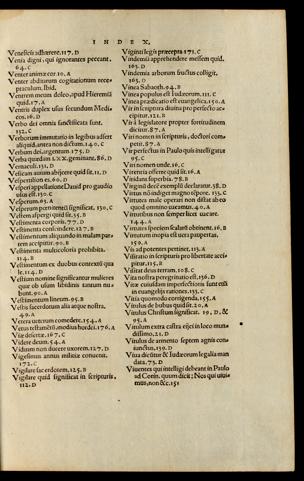 INDEX.
Venefici adhærere. 117. D
Venia digni, qui ignorantes peccant, 64. C
Venter animæ cor. 10. A
Venter abditurum cogitationum receptaculum. Ibid.
Ventrem meum doleo, apud Hieremiā quid. 17. A
Ventris duplex usus secundum Medicos. 16. D
Verbo dei omnia sanctificata sunt. 132. C
Verborum immutatio in legibus adfert aliquid antea non dictum. 140. C
Verbum dei argentum. 175. D
Verba quædam geminans. 86. D
Vernaculi. 131. D
Vesicam auium abijcere quid sit. 11. D
Vespertilion es. 60. D
Vesperi appellatione Dauid pro gaudio usus est. 150. C
Vesperum. 65. A
Vesperum pernitenti significat. 130. C
Vestem aspergi quid sit. 35. B
Vestimenta corporis. 77. D
Vestimenta conscindere. 127. B
Vestimentum aliquando in malam partem accipitur. 90. B
Vestimenta multicoloria prohibita. 114. B
Vestimentum ex duobus contextū quale. 114. D
Vestium nomine significantur mulieres quæ ob usum libidinis tantum nubunt. 90. A
Vestimentum lineum. 95. B
Vestis sacerdotum alia atque nostra, 49. A
Vetera ueterum comedere. 154. A
Vetus testamētū modius hordei. 176. A
Viæ desertæ. 167. C
Videre deum. 54. A
Viduam non ducere uxorem. 127. D
Vigesimus annus militiæ conuenit. 172. C
Vigilare sacerdotem. 125. B
Vigilare quid significat in scripturis, 112. D
Viginti legis præcepta 171. C
Vindemiā apprehendere messem quid. 163. D
Vindemia arborum fructus colligit, 163. D
Vinea Sabaoth. 94. B
Vinea populus est Iudæorum. 111. C
Vinea prædicatio est euangelica. 150. A
Vir in scriptura diuina pro perfecto accipitur. 121. B
Vir à legislatore propter fortitudinem dicitur. 87. A
Viri nomen in scripturis, doctori competit. 87. A
Vir perfectus in Paulo quis intelligatur 95. C
Viri nomen unde. 16. C
Virentia offerre quid sit. 16. A
Viridans superbia. 78. B
Virginū decē exemplū declaratur. 38. D
Virtus nō indiget magno tēpore. 153. C
Virtutes male operari non distat ab eo quod omnino uacemus. 40. A
Virtutibus non semper licet uacare. 144. A
Virtutis speciem scalatū obtinent. 16. B
Virtutum inopia est uera paupertas, 159. A
Vis ad potentes pertinet. 113. A
Visitatio in scripturis pro libertate accipitur. 115. B
Visitat deus terram. 108. C
Vita nostra peregrinatio est. 136. D
Vitæ cuiusdam imperfectionis sunt etiā in euangelijs rationes. 133. C
Vitia quomodo corrigenda. 155. A
Vitulus de bubus quid sit. 20. A
Vitulus Christum significat. 19, D, & 95. A
Vitulum extra castra eijci in loco mundissimo. 21. D
Vitulus de armento septem agnis coniunctus. 139. D
Viua dicitur & Iudæorum legalia mandata. 73. D
Viuentes qui intelligi debeant in Paulo ad Corin. quum dicit: Nos qui uiuimus, non &c. 151